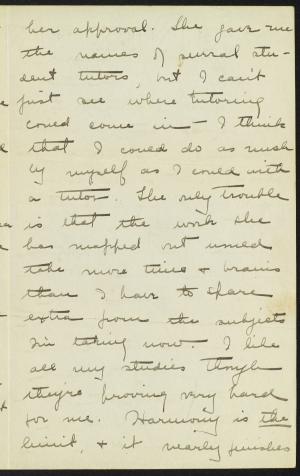 her approval. She gave me
the names of several stu-
dent tutors, but I can't
just see where tutoring
could come in – I think
that I could do as much
by myself as I could with
a tutor. The only trouble
is that the work she
has mapped out would
take more time & brains
than I have to spare
extra from the subjects
I'm taking now. I like
all my studies though
they're proving very hard
for me. Harmony is the
limit, & it nearly finishes